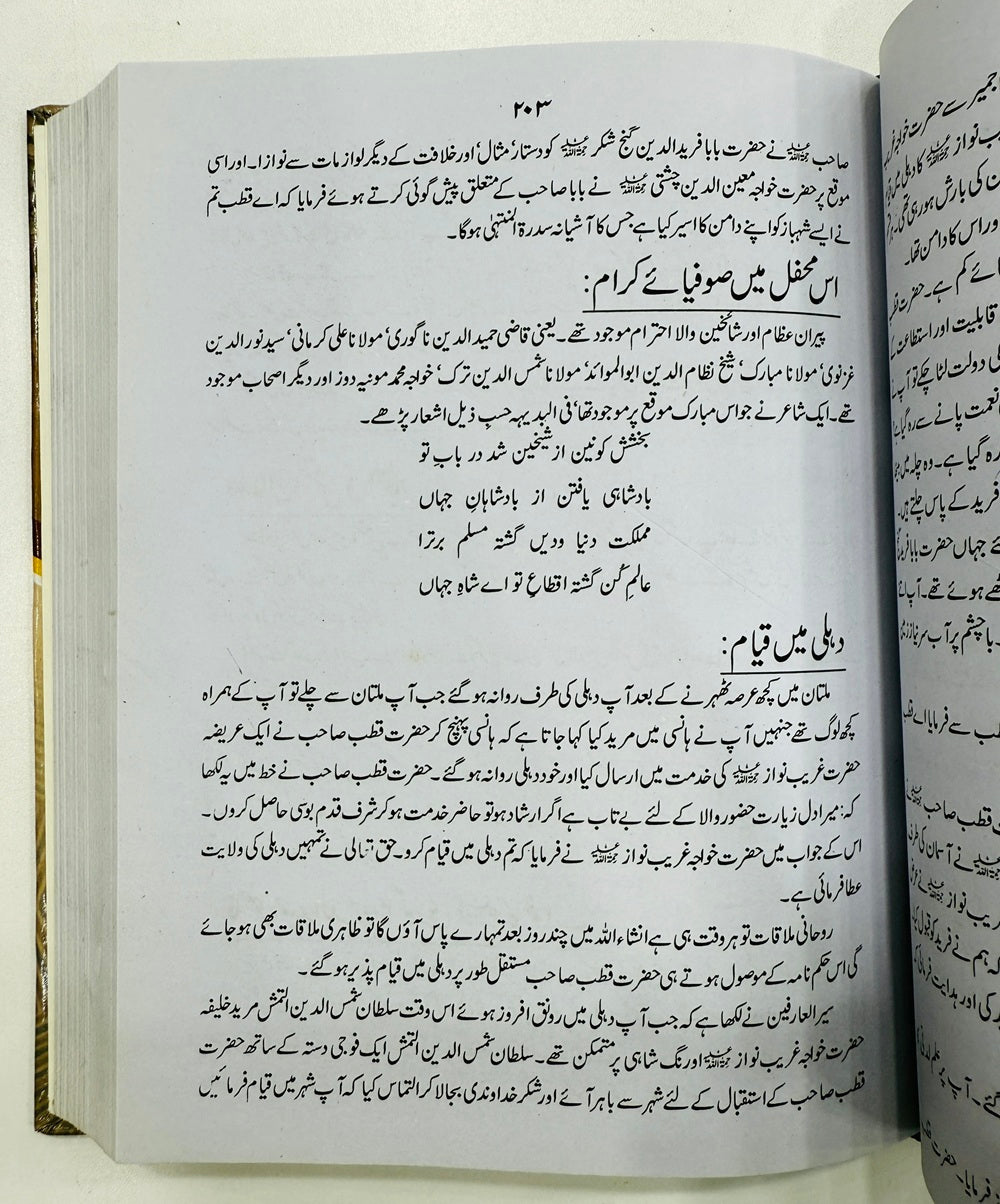 ۲۰۳
صاحب ؒ نے حضرت بابا فرید الدین گنج شکر ؒ کو دستار‘ مثال‘ اور خلافت کے دیگر لوازمات سے نوازا۔ اور اسی
موقع پر حضرت خواجہ معین الدین چشتی ؒ نے بابا صاحب کے متعلق پیش گوئی کرتے ہوئے فرمایا کہ اے قطب تم
نے ایسے شہباز کو اپنے دامن کا اسیر کیا ہے جس کا آشیانہ سدرۃ المنتہیٰ ہوگا۔
اس محفل میں صوفیائے کرام:
پیران عظام اور مشائخین والا احترام موجود تھے۔ یعنی قاضی حمید الدین ناگوری‘ مولانا علی کرمانی‘ سید نور الدین
غزنوی‘ مولانا مبارک‘ شیخ نظام الدین ابو الموائد‘ مولانا شمس الدین ترک‘ خواجہ محمد موئینہ دوز اور دیگر اصحاب موجود
تھے۔ ایک شاعر نے جو اس مبارک موقع پر موجود تھا‘ فی البدیہہ حسب ذیل اشعار پڑھے۔
بخشش کونین از شیخین شد در بابِ تو
بادشاہی یافتن از بادشاہانِ جہاں
مملکت دنیا و دیں گشتہ مسلم برترا
عالمِ کُن گشتہ اقطاعِ تو اے شاہِ جہاں
دہلی میں قیام:
ملتان میں کچھ عرصہ ٹھہرنے کے بعد آپ دہلی کی طرف روانہ ہو گئے جب آپ ملتان سے چلے تو آپ کے ہمراہ
کچھ لوگ تھے جنہیں آپ نے ہانسی میں مرید کیا کہا جاتا ہے کہ ہانسی پہنچ کر حضرت قطب صاحب نے ایک عریضہ
حضرت غریب نواز ؒ کی خدمت میں ارسال کیا اور خود دہلی روانہ ہو گئے۔ حضرت قطب صاحب نے خط میں یہ لکھا
کہ: میرا دل زیارت حضور والا کے لئے بے تاب ہے اگر ارشاد ہو تو حاضر خدمت ہو کر شرف قدم بوسی حاصل کروں۔
اس کے جواب میں حضرت خواجہ غریب نواز ؒ نے فرمایا کہ تم دہلی میں قیام کرو۔ حق تعالی نے تمہیں دہلی کی ولایت
عطا فرمائی ہے۔
روحانی ملاقات تو ہر وقت ہی ہے انشاء اللہ میں چند روز بعد تمہارے پاس آؤں گا تو ظاہری ملاقات بھی ہو جائے
گی اس حکم نامہ کے موصول ہوتے ہی حضرت قطب صاحب مستقل طور پر دہلی میں قیام پذیر ہو گئے۔
سیر العارفین نے لکھا ہے کہ جب آپ دہلی میں رونق افروز ہوئے اس وقت سلطان شمس الدین التمش مرید خلیفہ
حضرت خواجہ غریب نواز ؒ اورنگ شاہی پر متمکن تھے۔ سلطان شمس الدین التمش ایک فوجی دستہ کے ساتھ حضرت
قطب صاحب کے استقبال کے لئے شہر سے باہر آئے اور شکر خداوندی بجا لا کر التماس کیا کہ آپ شہر میں قیام فرمائیں